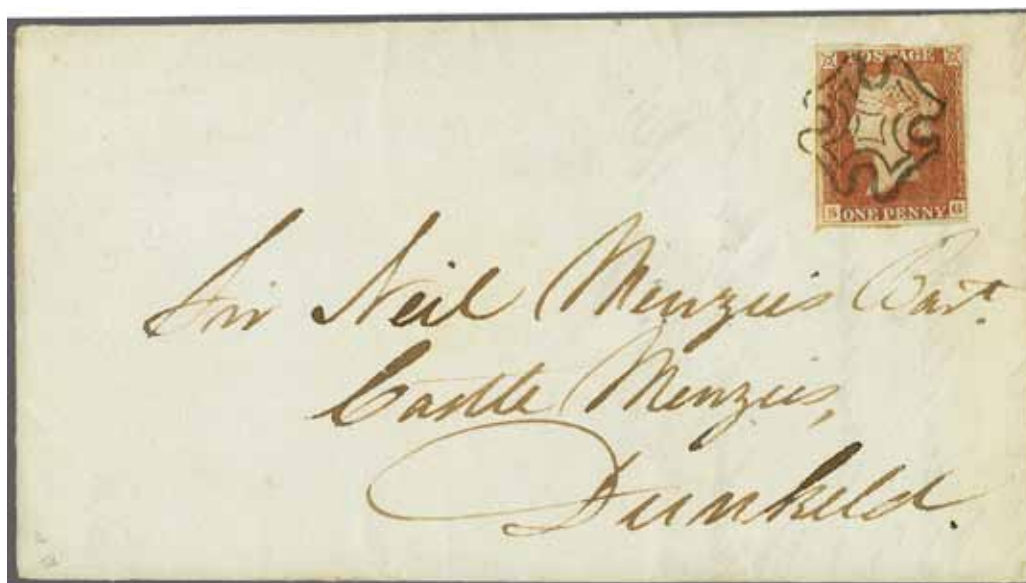 POSTAGE
S ONE PENNY G
Sir Neil Menzies Bart.
Castle Menzies,
Dunkeld.